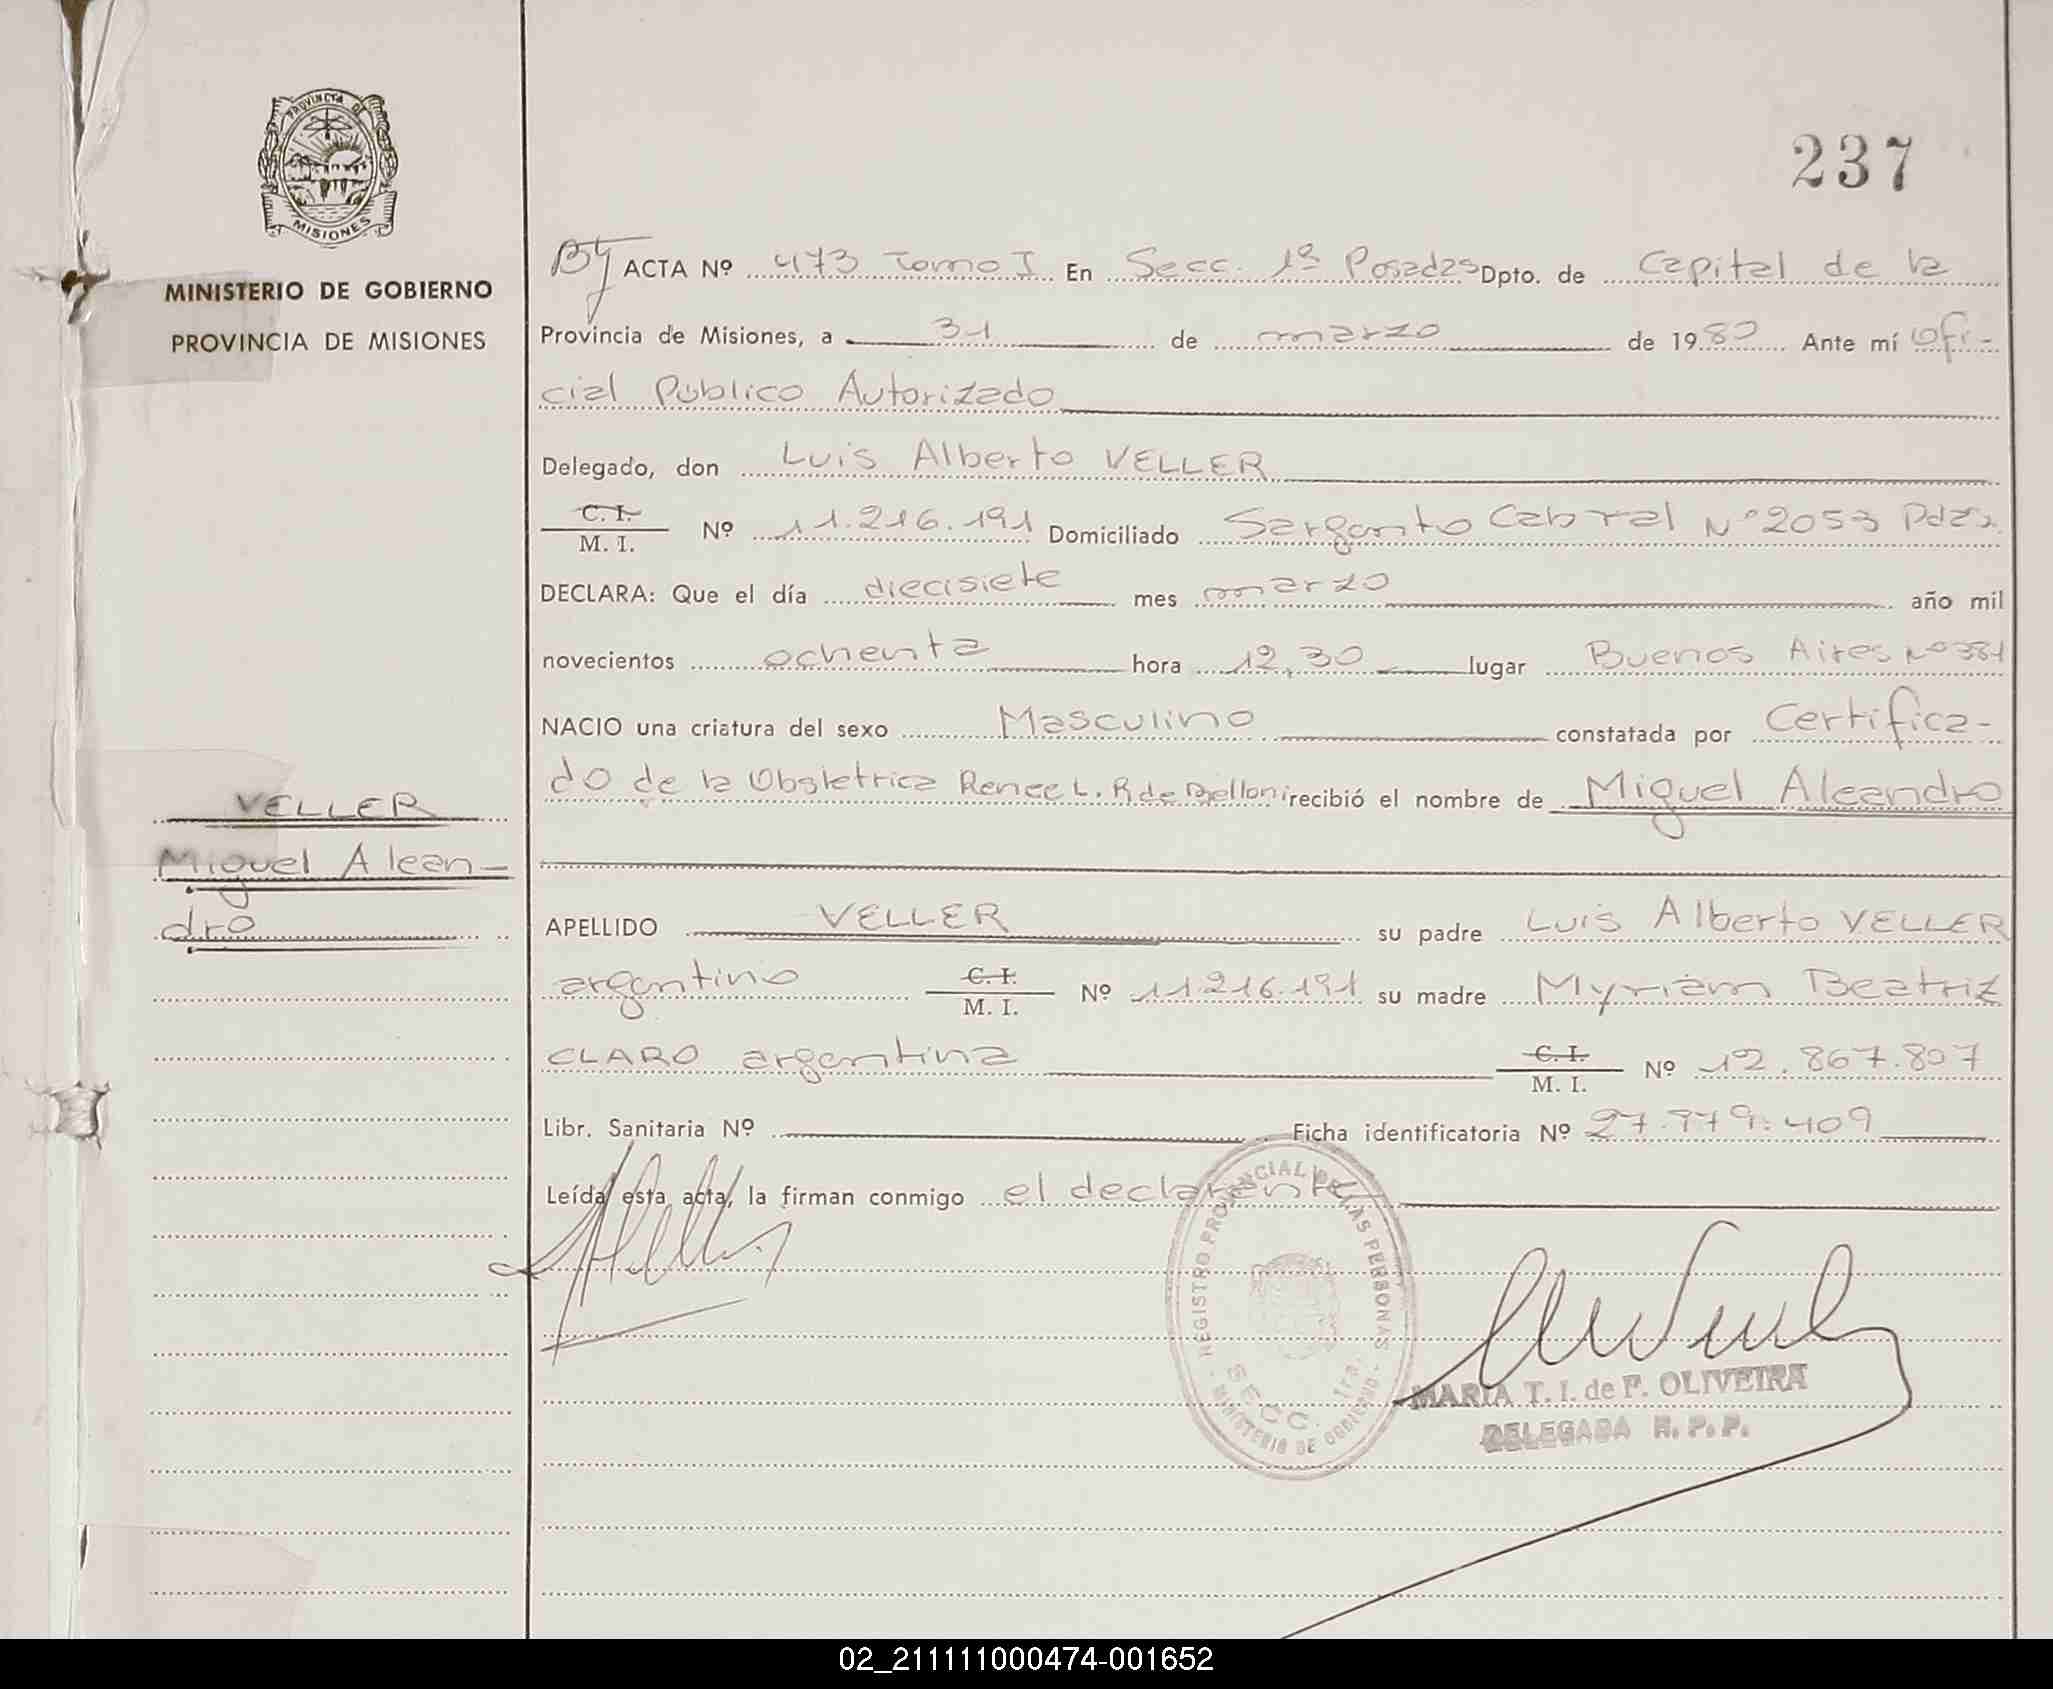 PROVINCIA DE
MISIONES
MINISTERIO DE GOBIERNO
PROVINCIA DE MISIONES
VELLER
Miguel Alean-
dro
237
ACTA Nº 473 Tomo I En Secc. 1ª Posadas Dpto. de Capital de la
Provincia de Misiones, a 31 de marzo de 1980 Ante mí Ofi-
cial Público Autorizado
Delegado, don Luis Alberto VELLER
C. I.
M. I. Nº 11.216.191 Domiciliado Sargento Cabral Nº 2053 Pdas.
DECLARA: Que el día diecisiete mes marzo año mil
novecientos ochenta hora 12,30 lugar Buenos Aires Nº 381
NACIO una criatura del sexo Masculino constatada por Certifica-
do de la Obstetrica Renee L. R. de Belloni recibió el nombre de Miguel Aleandro
APELLIDO VELLER su padre Luis Alberto VELLER
argentino C. I.
M. I. Nº 11.216.191 su madre Myriam Beatriz
CLARO argentina C. I.
M. I. Nº 12.867.807
Libr. Sanitaria Nº Ficha identificatoria Nº 27.979.409
Leída esta acta, la firman conmigo el declarante
REGISTRO PROVINCIAL DE LAS PERSONAS
SECC. 1ra.
MINISTERIO DE GOBIERNO
MARIA T. I. de F. OLIVEIRA
DELEGADA R. P. P.
02_211111000474-001652